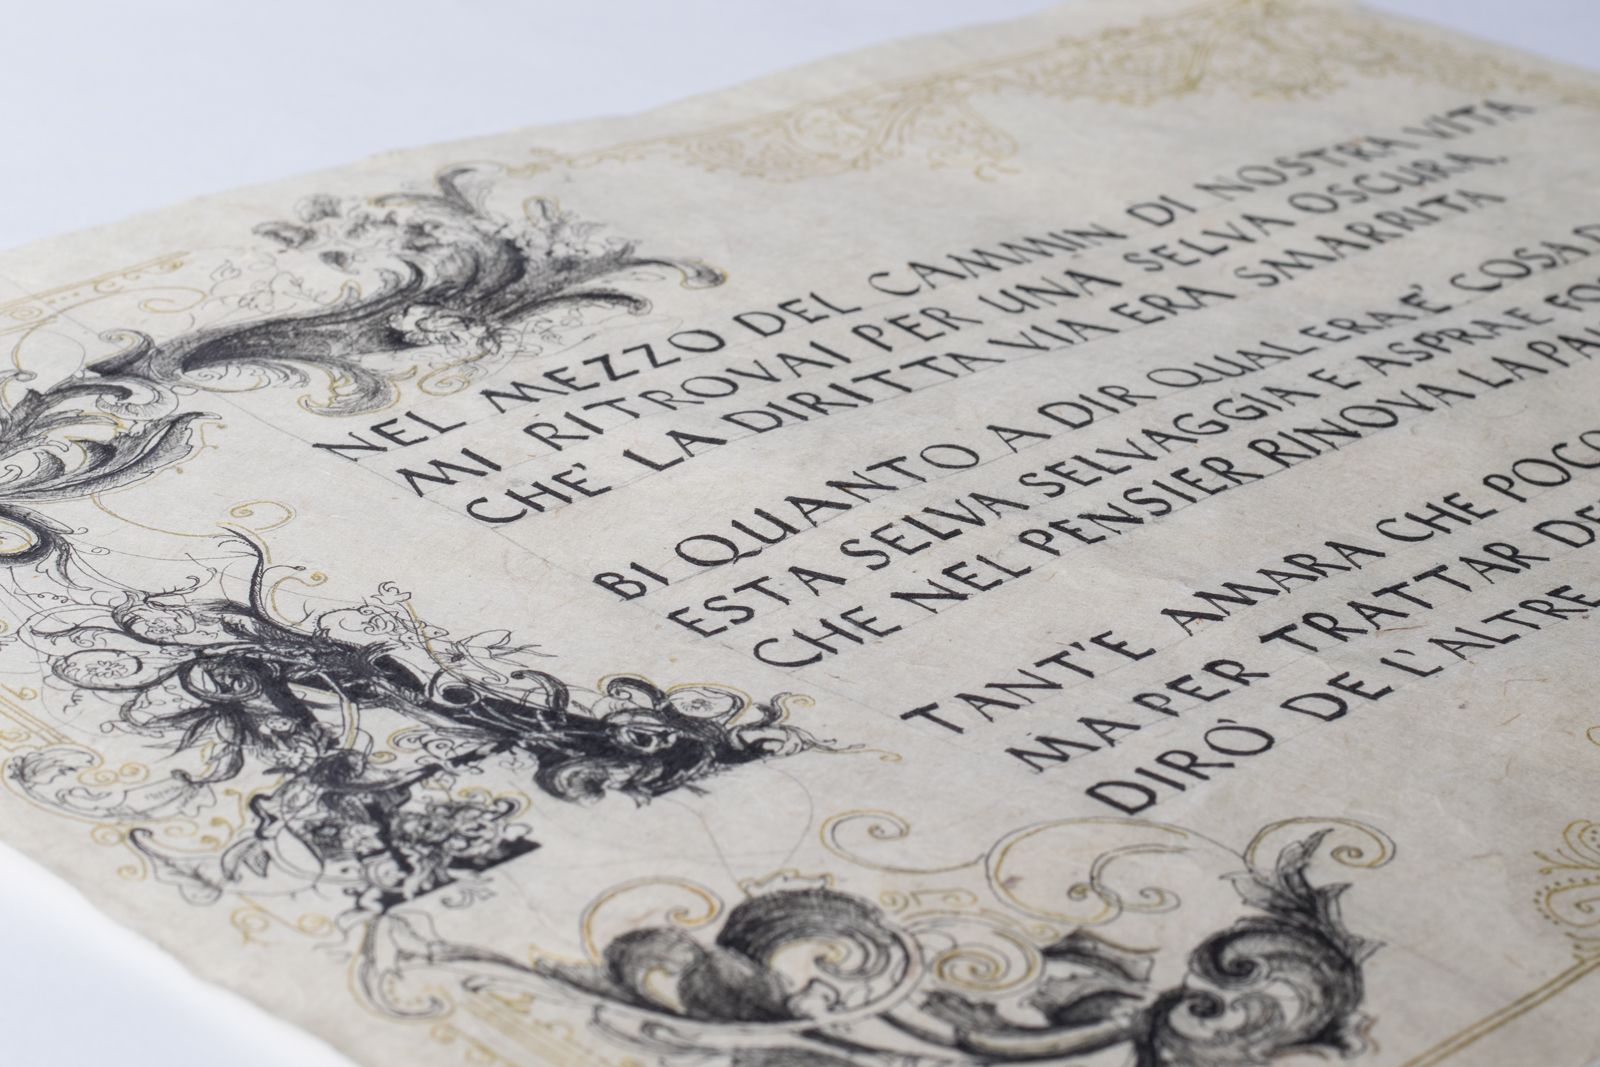 NEL MEZZO DEL CAMMIN DI NOSTRA VITA
MI RITROVAI PER UNA SELVA OSCURA,
CHE' LA DIRITTA VIA ERA SMARRITA
BI QUANTO A DIR QUAL ERA E' COSA
ESTA SELVA SELVAGGIA E ASPRA E
CHE NEL PENSIER RINOVA LA
TANT'E AMARA CHE POCO
MA PER TRATTAR
DIRO' DE L'ALTRE